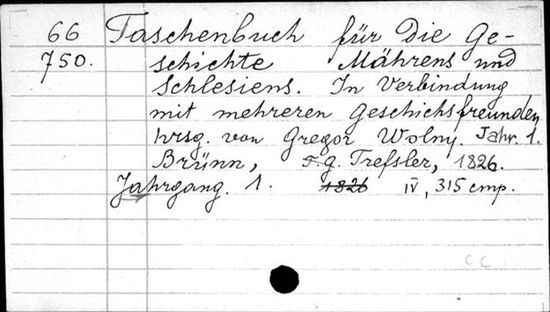 66 Taschenbuch für die Ge-
750. schichte Mährens und
Schlesiens. In Verbindung
mit mehreren Geschichsfreunden
hrsg. von Gregor Wolny. Jahr. 1.
Brünn, F.g. Trefsler, 1826.
Jahrgang. 1. 1826 IV, 315 cmp.
CC